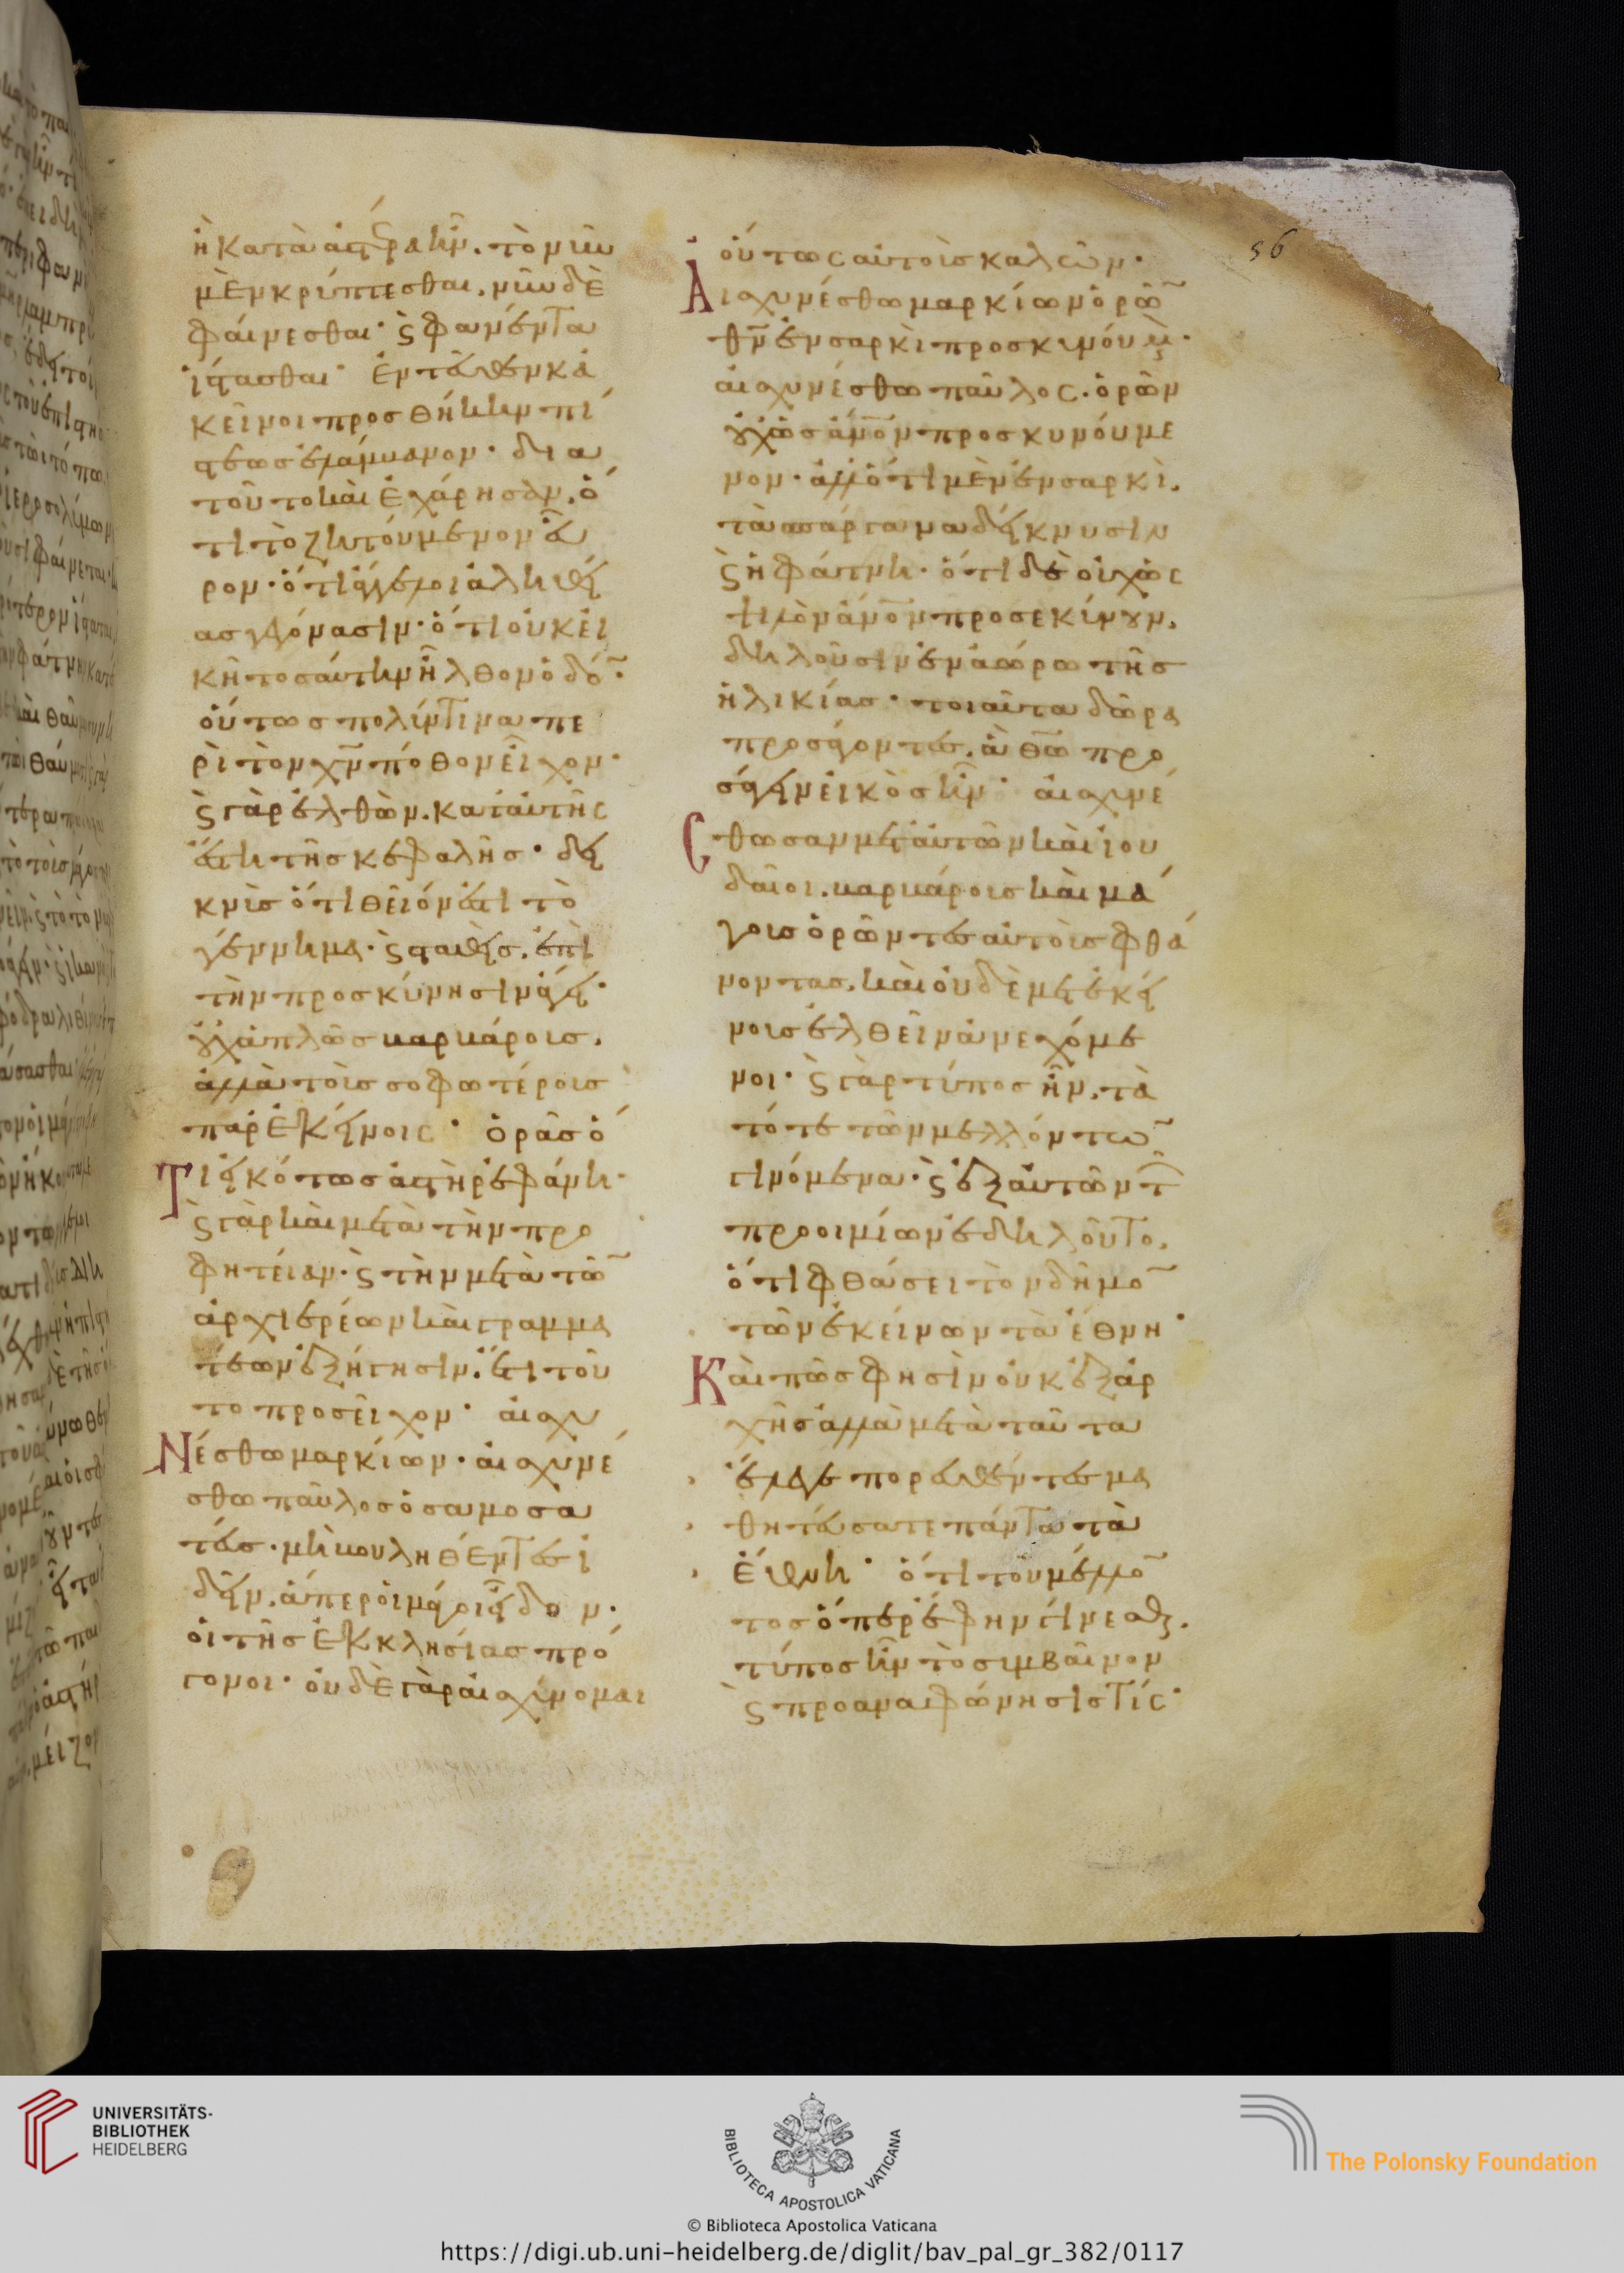 ἢ κατὰ ἀστέρα ἦν. τὸ νῦν
μὲν κρύπτεσθαι. νῦν δὲ
φαίνεσθαι· ϛ φανέντα
ἵστασθαι· ἐντεῦθεν κἀ
κεῖνοι προσθήκην πί
στεως ἐλάμβανον· δια
τοῦτο καὶ ἐχάρησαν. ὅ
τι τὸ ζητούμενον εὗ
ρον· ὅτι ἄγγελοι ἀληθεί
ας γεγόνασιν· ὅτι οὐκ εἰ
κῆ τοσαύτην ἦλθον ὁδό̄·
οὕτως πολύν τινα πε
ρὶ τὸν χ̅ν̅ πόθον εἶχον·
ϛ γὰρ ἐλθὼν. κατ' αὐτῆς
ἔστη τῆς κεφαλῆς· δει
κνὺς ὅτι θεῖόν ἐστι τὸ
γέννημα· ϛ σταθεὶς. ἐπὶ
τὴν προσκύνησιν ἄγει·
οὐχ ἁπλῶς βαρβάροις.
ἀλλὰ τοῖς σοφωτέροις
παρ' ἐκείνοις· ὁρᾶς ὅ
Τι εἰκότως ἀστὴρ ἐφάνη·
ϛ γὰρ καὶ μετὰ τὴν προ
φητείαν· ϛ τὴν μετὰ τῶ̄
ἀρχιερέων καὶ γραμμα
τέων ἐξήγησιν. ἔτι τοῦ
το προσεῖχον· αἰσχυ
Νέσθω μαρκίων· αἰσχυνέ
σθω παῦλος ὁ σαμοσα
τεύς· μὴ βουληθέντες ἰ
δεῖν. ἅπερ οἱ μάγοι εἶδον·
οἱ τῆς ἐκκλησίας πρό
γονοι· οὐδὲ γὰρ αἰσχύνομαι
56
οὕτως αὐτοὺς καλεῖν·
Αἰσχυνέσθω μαρκίων ὁρῶ̄
θ̅ν̅ ἐν σαρκὶ προσκυνούμ·
αἰσχυνέσθω παῦλος. ὁρῶν
οὐχ ὡς ἄ̅ν̅ο̅ν̅ προσκυνούμε
νον· ἀλλ' ὅτι μὲν ἐν σαρκὶ.
τὰ σπάργανα δείκνυσιν
ϛ ἡ φάτνη· ὅτι δὲ οὐχ ὡς
ψιλὸν ἄ̅ν̅ο̅ν̅ προσεκύνουν.
δηλοῦσιν ἐν ἀώρω τῆς
ἡλικίας· τοιαῦτα δῶρα
προσάγοντες. ἃ θ̅ω̅ προ
σάγειν εἰκὸς ἦν· αἰσχυνέ
Σθωσαν μετ' αὐτῶν καὶ ἰου
δαῖοι. βαρβάροις καὶ μά
γοις ὁρῶντες αὐτοὺς φθά
νοντας. καὶ οὐδὲ μετ' ἐκεί
νοις ἐλθεῖν ἀνεχόμε
νοι· ϛ γὰρ τύπος ἦν. τὰ
τότε τῶν μελλόντω̄
γινόμενα· ϛ ἐξ αὐτῶν τ̅
προοιμίων ἐδηλοῦτο.
ὅτι φθάσει τὸν δῆμο̄
τῶν ἐκείνων τὰ ἔθνη·
Καὶ πῶς φησὶν οὐκ ἐξ ἀρ
χῆς ἀλλὰ μετὰ ταῦτα
ἔλεγε πορευθέντες μα
θητεύσατε πάντα τὰ
ἔθνη· ὅτι τοῦ μέλλο̄
τος ὅπερ ἔφην γίνεσθ.
τύπος ἦν τὸ συμβαῖνον
ϛ προαναφώνησίς τις·
UNIVERSITÄTS-
BIBLIOTHEK
HEIDELBERG
BIBLIOTECA APOSTOLICA VATICANA
The Polonsky Foundation
© Biblioteca Apostolica Vaticana
https://digi.ub.uni-heidelberg.de/diglit/bav_pal_gr_382/0117